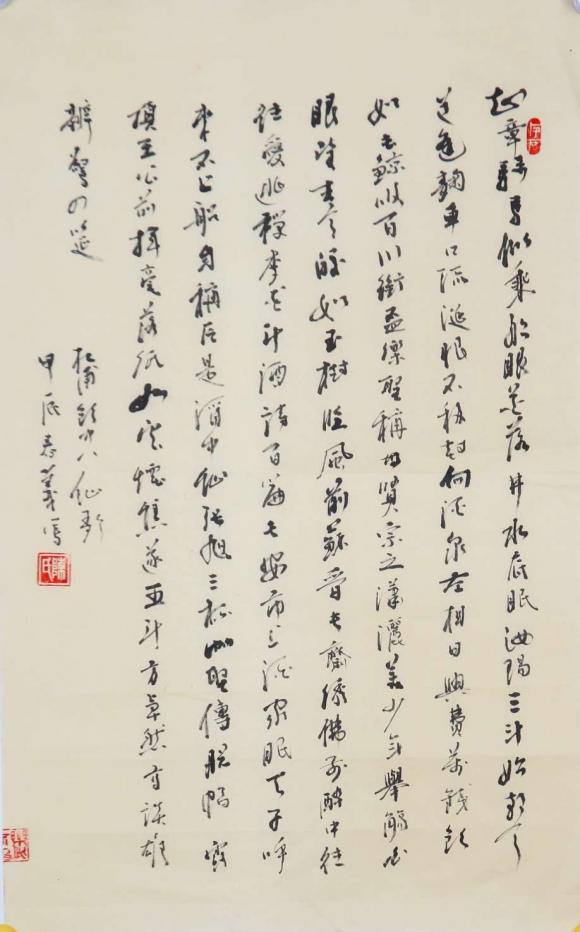 知章騎馬似乘船眼花落井水底眠汝陽三斗始朝天
道逢麴車口流涎恨不移封向酒泉左相日興費萬錢飲
如長鯨吸百川銜盃樂聖稱避賢宗之瀟灑美少年舉觴白
眼望青天皎如玉樹臨風前蘇晉長齋繡佛前醉中往
往愛逃禪李白斗酒詩百篇長安市上酒家眠天子呼
來不上船自稱臣是酒中仙張旭三杯草聖傳脫帽露
頂王公前揮毫落紙如雲煙焦遂五斗方卓然高談雄
辯驚四筵
杜甫飲中八仙歌
甲辰
陳氏